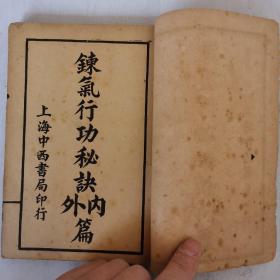 鍊氣行功秘訣內外篇
上海中西書局印行